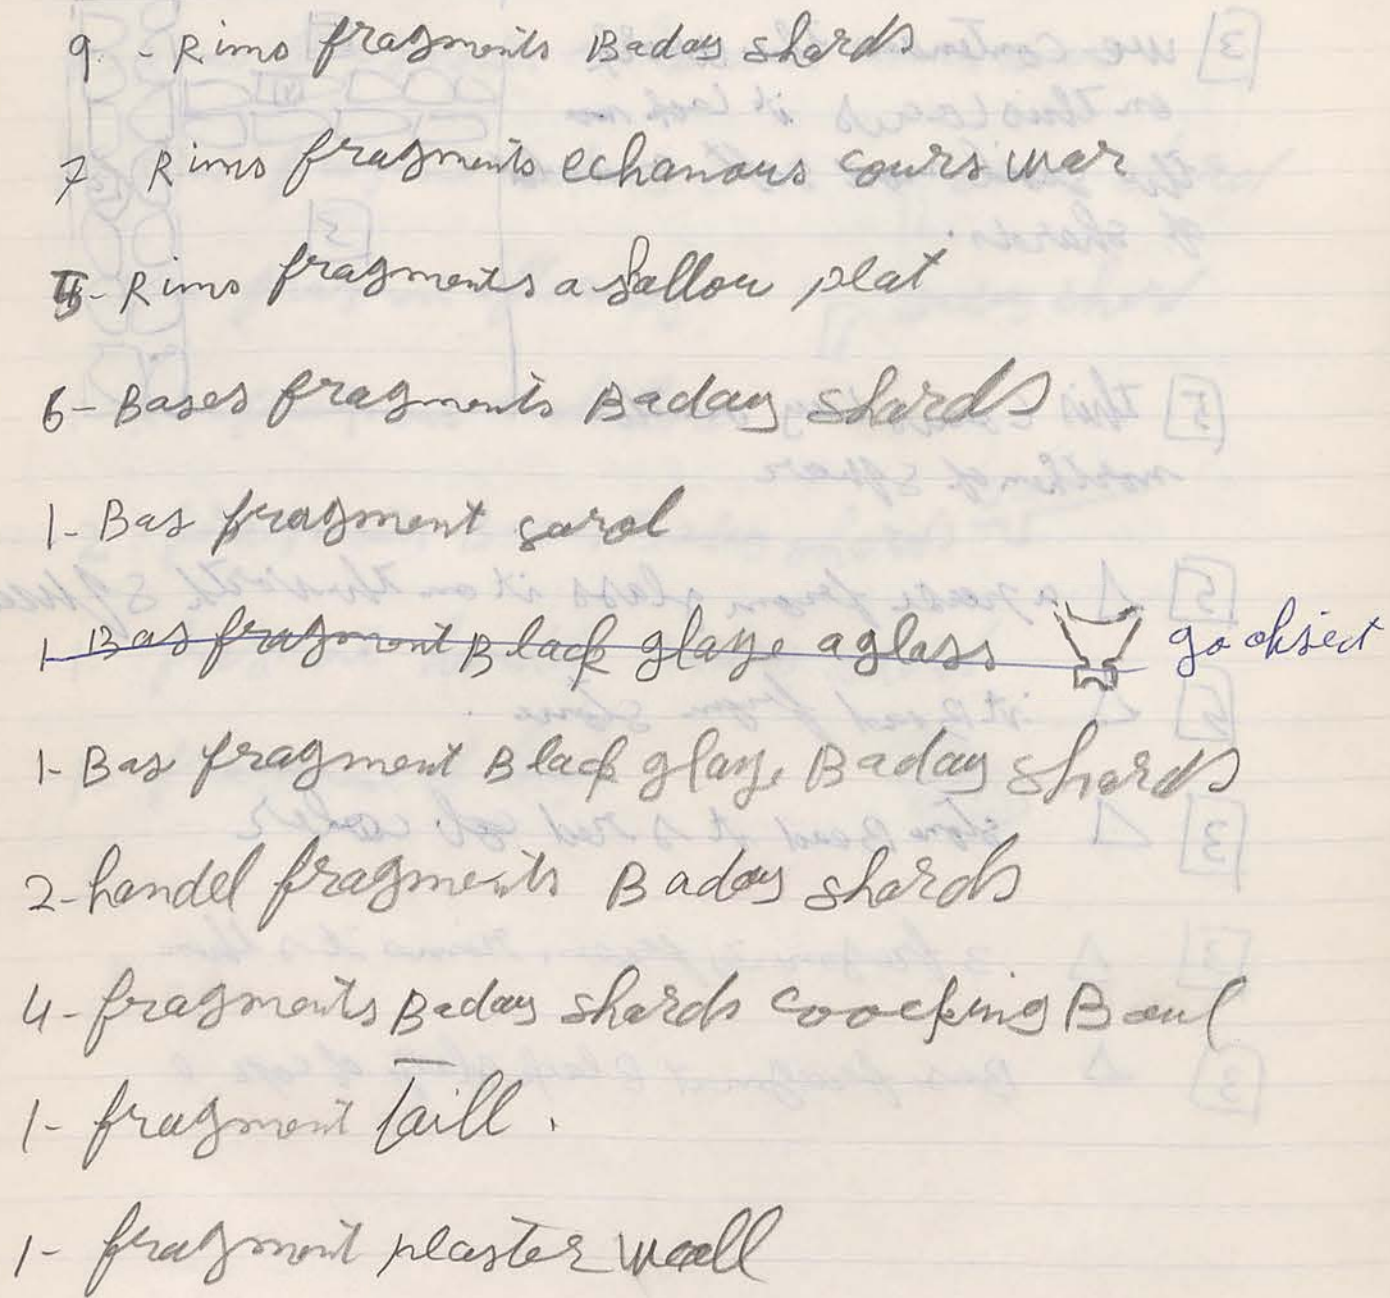 9. - Rims fragments Baday shards
7 Rims fragments echanous cours war
5- Rims fragments a sallow plat
6- Bases fragments Baday shards
1- Bas fragment
1- Bas fragment Black glaze a glass go obsect
1- Bas fragment Black glaze Baday shards
2- handel fragments Baday shards
4- fragments Baday shards coocking Boul
1- fragment Taill.
1- fragment plaster wall